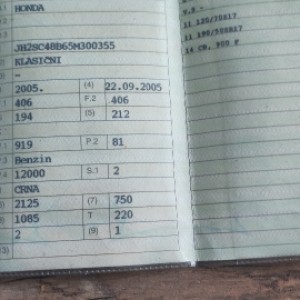 HONDA
JH2SC48B65M300355
KLASIČNI
-
2005. (4) 22.09.2005
406 F.2 406
194 (5) 212
919 P.2 81
Benzin
12000 S.1 2
CRNA
2125 (7) 750
1085 T 220
2 (9) 1
11 120/70X17
11 190/50X17